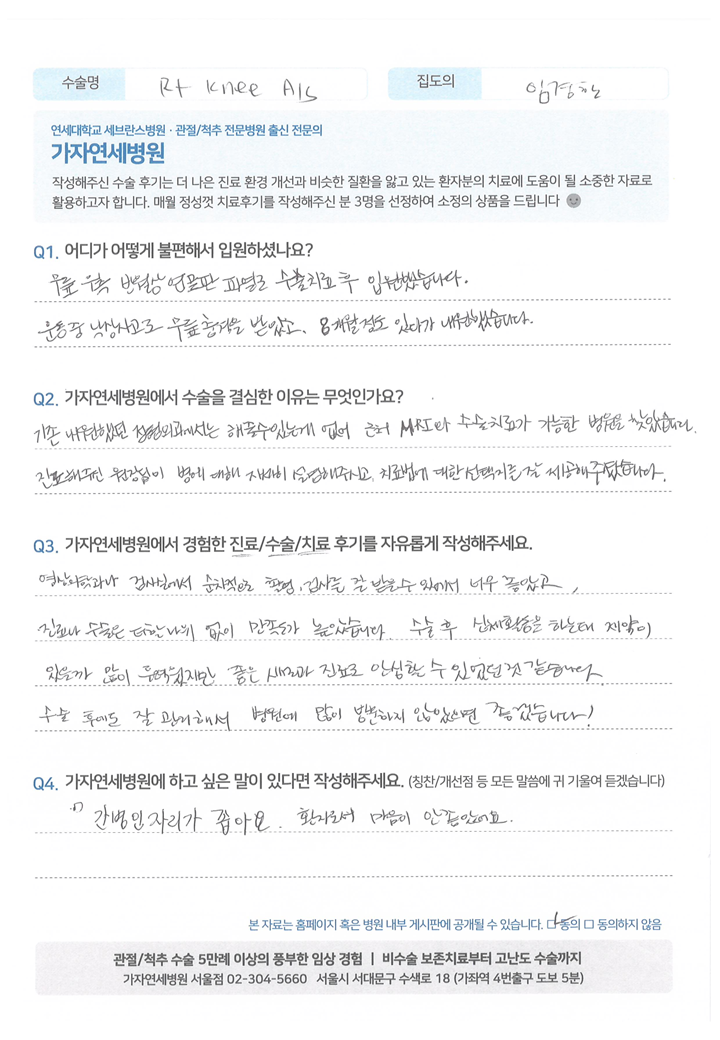 수술명 Rt knee A/S 집도의 임경한
연세대학교 세브란스병원 · 관절/척추 전문병원 출신 전문의
가자연세병원
작성해주신 수술 후기는 더 나은 진료 환경 개선과 비슷한 질환을 앓고 있는 환자분의 치료에 도움이 될 소중한 자료로
활용하고자 합니다. 매월 정성껏 치료후기를 작성해주신 분 3명을 선정하여 소정의 상품을 드립니다
Q1. 어디가 어떻게 불편해서 입원하셨나요?
무릎 우측 반월상 연골판 파열로 수술치료 후 입원했습니다.
운동중 낙상사고로 무릎 충격을 받았고, 8개월정도 있다가 내원했습니다.
Q2. 가자연세병원에서 수술을 결심한 이유는 무엇인가요?
기존 내원했던 정형외과에서는 해줄수있는게 없어 근처 MRI와 수술치료가 가능한 병원을 찾았습니다.
진료해주신 원장님이 병에 대해 자세히 설명해주시고, 치료법에 대한 선택지를 잘 제공해주셨습니다.
Q3. 가자연세병원에서 경험한 진료/수술/치료 후기를 자유롭게 작성해주세요.
영상의학과나 검사실에서 순차적으로 촬영, 검사를 잘 받을수 있어서 너무 좋았고,
진료나 수술은 더할나위 없이 만족도가 높았습니다. 수술 후 신체활동을 하는데 제약이
있을까 많이 두려웠지만 좋은 진료로 안심할 수 있었던것 같습니다.
수술 후에도 잘 관리해서 병원에 많이 방문하지 않았으면 좋겠습니다!
Q4. 가자연세병원에 하고 싶은 말이 있다면 작성해주세요. (칭찬/개선점 등 모든 말씀에 귀 기울여 듣겠습니다)
간병인자리가 좁아요. 환자로서 마음이 안좋았어요.
본 자료는 홈페이지 혹은 병원 내부 게시판에 공개될 수 있습니다. □ 동의 □ 동의하지 않음
관절/척추 수술 5만례 이상의 풍부한 임상 경험 | 비수술 보존치료부터 고난도 수술까지
가자연세병원 서울점 02-304-5660 서울시 서대문구 수색로 18 (가좌역 4번출구 도보 5분)